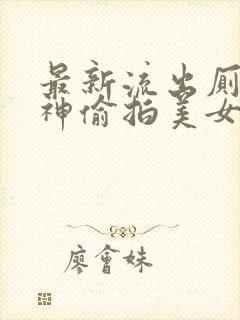 最新流出厕
神偷拍美女
廖會妹